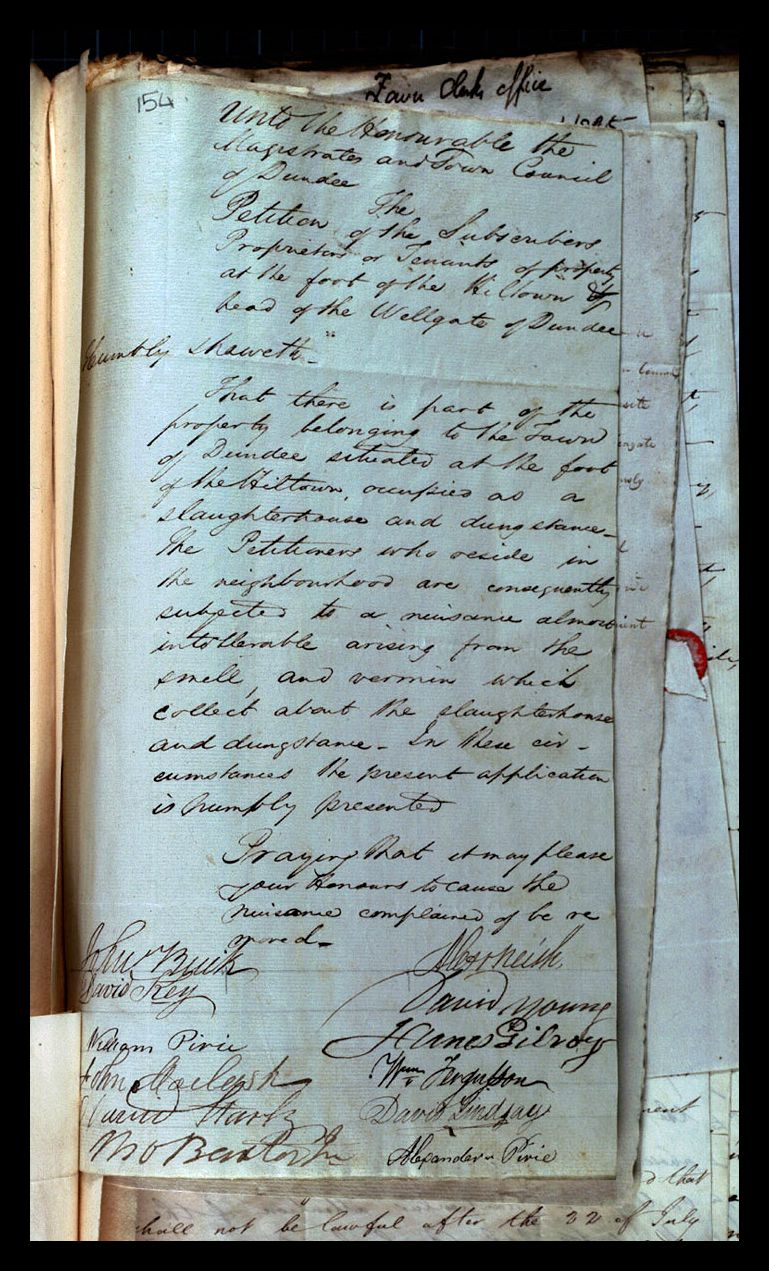 154
Town Clerks office
Unto the Honourable the
Magistrates and Town Council
of Dundee
The
Petition of the Subscribers
Proprietors or Tenants of property
at the foot of the Hiltown &
head of the Wellgate of Dundee
Humbly Sheweth
That there is part of the
property belonging to the Town
of Dundee situated at the foot
of the Hiltown, occupied as a
slaughterhouse and dungstance_
The Petitioners who reside in
the neighbourhood are consequently
subjected to a nuisance almost
intollerable arising from the
smell, and vermin which
collect about the slaughterhouse
and dungstance - In these cir-
cumstances the present application
is humbly presented
Praying that it may please
your Honours to cause the
nuisance complained of be re
moved_
John Buik
David Key
William Pirie
John
David Stark
Tho Baxter Jr
Alex Keith
David Young
James Gilroy
Wm Fergusson
David Lindsay
Alexander Pirie
d that
shall not be lawful after the 32 of July